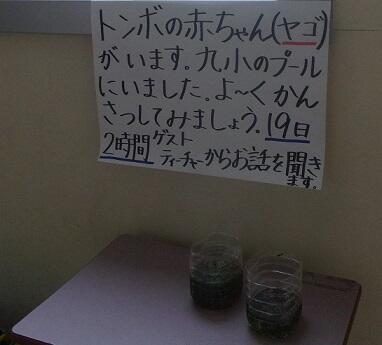 トンボの赤ちゃん(ヤゴ)
がいます。九小のプール
にいました。よ〜くかん
さつしてみましょう。19日
2時間ゲストティーチャーからお話を聞きます。